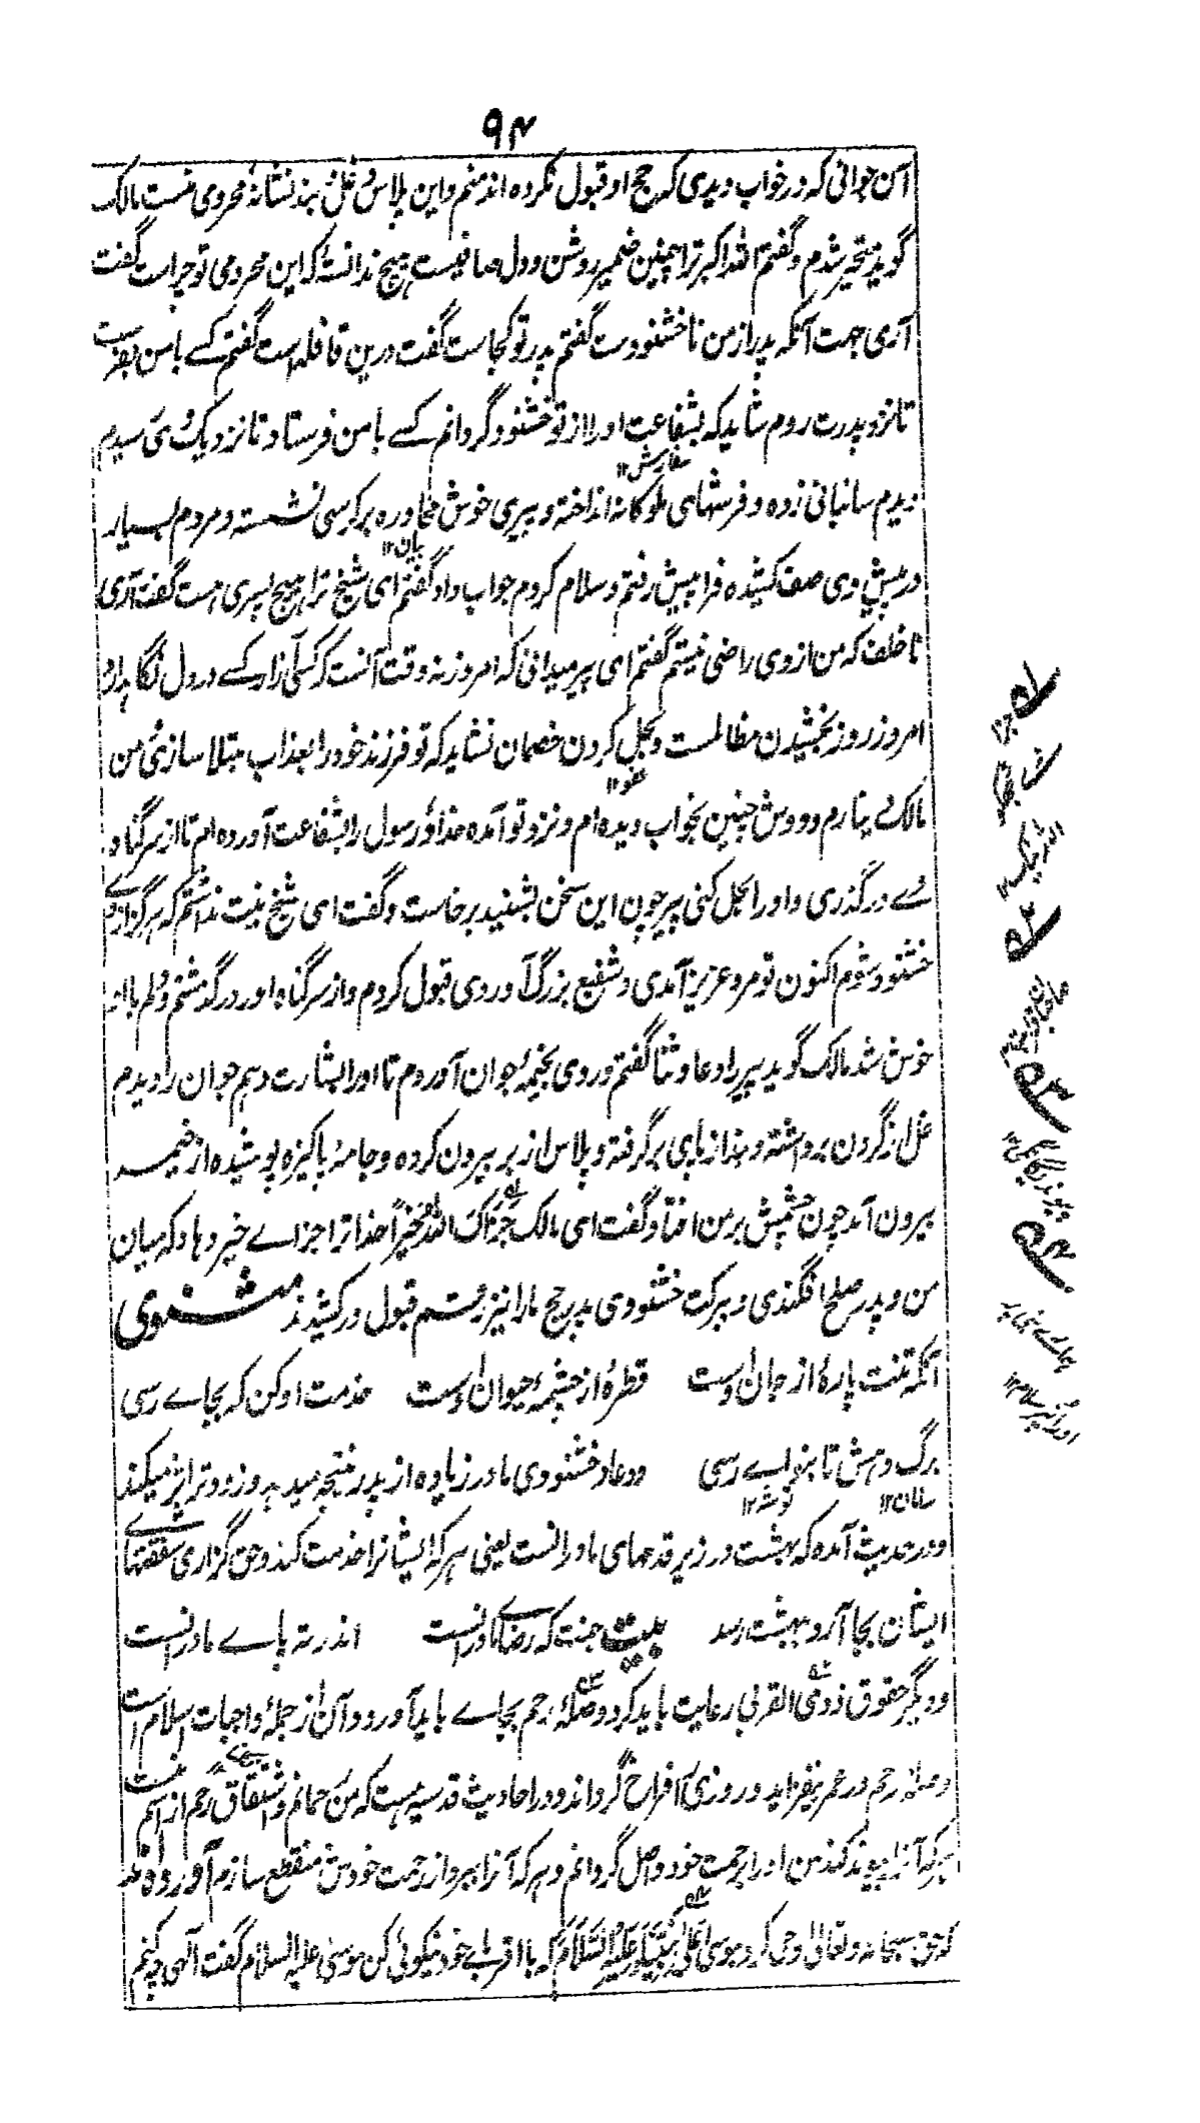 ۹۴
آن جوانی که در خواب دیدی که حج او قبول نکرده اند منم و این پلاس و غل و بند نشانهٔ محرومی منست مالک
گوید متحیر شدم و گفتم الله اکبر ترا چنین ضمیر روشن و دل صافیست هیچ ندانسته که این محرومی تو چراست گفت
آری جهت آنکه پدر از من ناخشنودست گفتم پدر تو کجاست گفت درین قافله است گفتم کسے با من بفرست
تا نزد پدرت روم شاید که بشفاعت او را از تو خشنود گردانم کسے با من فرستاد تا نزدیک وی رسیدم
سفارش۱۲
دیدم سائبانی زده و فرشهای ملوکانه انداخته و پیری خوش محاوره بر کرسی نشسته و مردم بسیار
بیان۱۲
در پیش وی صف کشیده فرا پیش رفتم و سلام کردم جواب داد گفتم ای شیخ ترا هیچ پسری هست گفت آری
ناخلف که من از وی راضی نیستم گفتم ای پیر میدانی که امروز نه وقت آنست که کسی آزار کسے در دل نگاهدارد
امروز روز بخشیدن مظالمست و بحل کردن خصمان نشاید که تو فرزند خود را بعذاب مبتلا سازی من
عفو۱۲
مالک دینارم و دوش چنین بخواب دیده ام و نزد تو آمده خدا و رسول را بشفاعت آورده ام تا از سر گناه
وے درگذری و او را بحل کنی پیر چون این سخن بشنید برخاست و گفت ای شیخ نیت نداشتم که هرگز از وے
خشنود شوم اکنون تو مرد عزیز آمدی و شفیع بزرگ آوردی قبول کردم و از سر گناه او درگذشتم و دلم با او
خوش شد مالک گوید پیر را دعا و ثنا گفتم و روی بخیمهٔ جوان آوردم تا او را بشارت دهم جوان را دیدم
غل از گردن برداشته و بند از پای برگرفته و پلاس از بر بیرون کرده و جامهٔ پاکیزه پوشیده از خیمه
بیرون آمد چون چشمش بر من افتاد گفت ای مالک جزاک الله خیرا خدا ترا جزاے خیر دهاد که میان
من و پدر صلح افگندی و ببرکت خشنودی پدر حج مارا نیز رقم قبول درکشیدند مثنوی
آنکه تنت پارهٔ از جان اوست قطرهٔ از چشمهٔ حیوان اوست خدمت او کن که بجاے رسی
برگ دهش تا بنواے رسی و دعا و خشنودی مادر زیاده از پدر نتیجه میدهد و زودتر اثر میکند
سامان۱۲ توشه۱۲
و در حدیث آمده که بهشت در زیر قدمهای مادرانست یعنی هر که ایشانرا خدمت کند و حق گزاری شفقتهاے
ایشان بجا آرد ببهشت رسد بیت جنت که رضاے مادرانست اندر ته پاے مادرانست
و دیگر حقوق ذوی القربی رعایت باید کرد و صلهٔ رحم بجاے باید آورد و آن از جملهٔ واجبات اسلام است
و صلهٔ رحم در عمر بیفزاید و روزی را فراخ گرداند و در احادیث قدسیه هست که من رحمانم و اشتقاق رحم از اسم منست
هر که آنرا پیوند کند من او را برحمت خود واصل گردانم و هر که آنرا ببرد از رحمت خودش منقطع سازم آورده اند
که حق سبحانه و تعالی وحی کرد بموسی علی نبینا و علیه السلام که با اقرباے خود نیکوئی کن موسی علیه السلام گفت الهی چه کنم